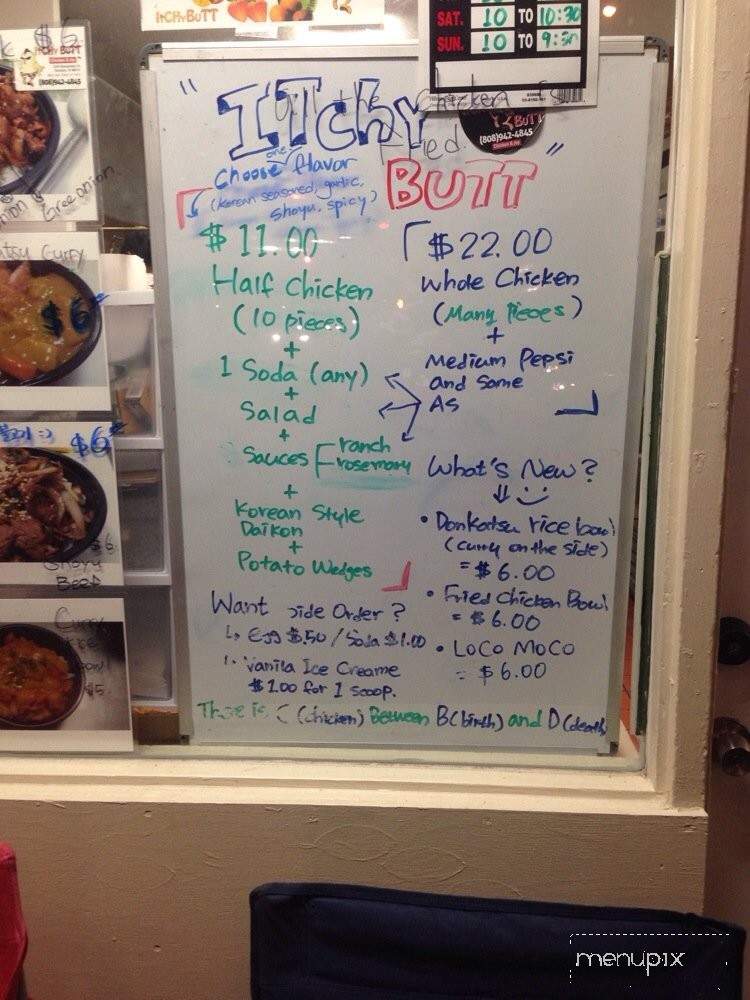 ITCHY BUTT
(808)942-4845
ITCHY BUTT
SAT. 10 TO 10:30
SUN. 10 TO 9:30
BUTT
(808)942-4845
Chicken & Joy
" ITchy
BUTT "
Choose one flavor
(korean seasoned, garlic,
shoyu, spicy)
$11.00
Half Chicken
(10 pieces)
+
1 Soda (any)
+
Salad
+
Sauces ranch
rosemary
+
Korean Style
Daikon
+
Potato Wedges
Want side Order?
Egg $.50 / Soda $1.00
Vanila Ice Creame
$1.00 for 1 scoop.
$22.00
Whole Chicken
(Many Pieces)
+
Medium Pepsi
and Same
As
What's New?
⇓ :)
• Donkatsu rice bowl
(curry on the side)
= $6.00
• Fried Chicken Bowl
= $6.00
• LoCo MoCo
= $6.00
There is C (chicken) Between B(birth) and D(death)
Green onion
Curry
$6
:) $6
$6.
Shoyu
Beef
Curry
$5.
menupix